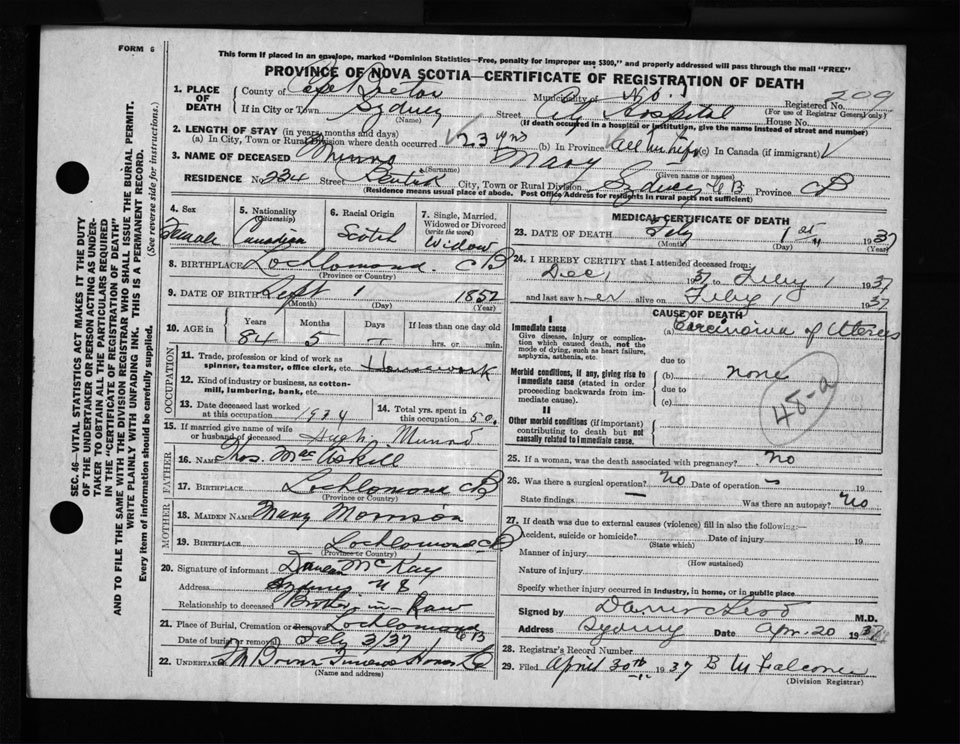 FORM 6
This form if placed in an envelope, marked "Dominion Statistics—Free, penalty for improper use $300," and properly addressed will pass through the mail "FREE"
PROVINCE OF NOVA SCOTIA—CERTIFICATE OF REGISTRATION OF DEATH
1. PLACE OF DEATH
County of Cape Breton Municipality of No. 5 Registered No. 209
(For use of Registrar General only)
If in City or Town Sydney Street City Hospital House No.
(Name) (If death occurred in a hospital or institution, give the name instead of street and number)
2. LENGTH OF STAY (in years, months and days)
(a) In City, Town or Rural Division where death occurred 23 yrs (b) In Province all her life (c) In Canada (if immigrant)
3. NAME OF DECEASED Munro Mary
(Surname) (Given name or names)
RESIDENCE No. 234 Street City, Town or Rural Division Sydney CB Province CB
(Residence means usual place of abode. Post Office Address for residents in rural parts not sufficient)
4. Sex Female
5. Nationality (Citizenship) Canadian
6. Racial Origin Scotch
7. Single, Married, Widowed or Divorced (write the word) Widow
8. BIRTHPLACE Lochlomond. CB
(Province or Country)
9. DATE OF BIRTH Sept 1 1852
(Month) (Day) (Year)
10. AGE in Years 84 Months 5 Days — If less than one day old hrs. or min.
OCCUPATION
11. Trade, profession or kind of work as spinner, teamster, office clerk, etc. Housework
12. Kind of industry or business, as cotton-mill, lumbering, bank, etc.
13. Date deceased last worked at this occupation 1934
14. Total yrs. spent in this occupation 50.
15. If married give name of wife or husband of deceased Hugh Munro
FATHER
16. NAME Thos. MacAskill
17. BIRTHPLACE Lochlomond CB
(Province or Country)
MOTHER
18. MAIDEN NAME Mary Morrison
19. BIRTHPLACE Lochlomond CB
(Province or Country)
20. Signature of informant Duncan McKay
Address Sydney N S
Relationship to deceased Brother-in-Law
21. Place of Burial, Cremation or Removal Lochlomond CB
Date of burial or removal Feby 3/37
22. UNDERTAKER Funeral Home
(Name and address)
MEDICAL CERTIFICATE OF DEATH
23. DATE OF DEATH Feby 1st 1937
(Month) (Day) (Year)
24. I HEREBY CERTIFY that I attended deceased from:
Dec, 1937 to Feby 1 1937
and last saw her alive on Feby 1 1937
CAUSE OF DEATH
I
Immediate cause
Give disease, injury or complication which caused death, not the mode of dying, such as heart failure, asphyxia, asthenia, etc.
(a) Carcinoma of Uterus
due to
Morbid conditions, if any, giving rise to immediate cause (stated in order proceeding backwards from immediate cause).
(b) none
due to
(c)
48-a
II
Other morbid conditions (if important) contributing to death but not causally related to immediate cause.
25. If a woman, was the death associated with pregnancy? No
26. Was there a surgical operation? No Date of operation — 19
State findings — Was there an autopsy? No
27. If death was due to external causes (violence) fill in also the following:—
Accident, suicide or homicide? Date of injury 19
(State which)
Manner of injury
(How sustained)
Nature of injury
Specify whether injury occurred in industry, in home, or in public place
Signed by M.D.
Address Sydney Date Apr. 20 1937
28. Registrar's Record Number
29. Filed April 30th 1937 B M Falconer
(Division Registrar)
SEC. 46—VITAL STATISTICS ACT MAKES IT THE DUTY
OF THE UNDERTAKER OR PERSON ACTING AS UNDER-
TAKER TO OBTAIN ALL THE PARTICULARS REQUIRED
IN THE "CERTIFICATE OF REGISTRATION OF DEATH"
AND TO FILE THE SAME WITH THE DIVISION REGISTRAR WHO SHALL ISSUE THE BURIAL PERMIT.
WRITE PLAINLY WITH UNFADING INK. THIS IS A PERMANENT RECORD.
Every item of information should be carefully supplied. (See reverse side for instructions.)